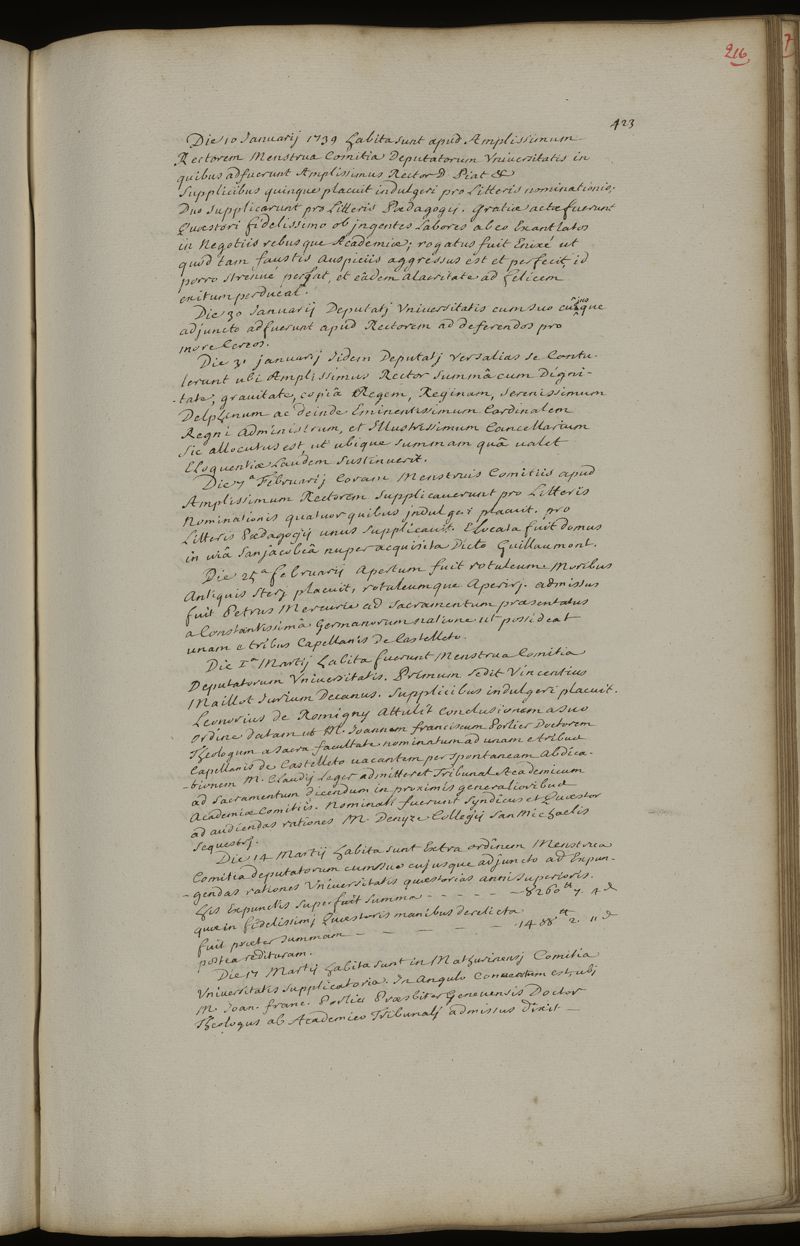 216
7
423
Die 10 Januarij 1739 habita sunt apud Amplissimum
Rectorem Menstrua Comitia Deputatorum Vniuersitatis in
quibus adfuerunt Amplissimus Rector D. Piat &
Supplicibus quinque placuit indulgeri pro Litteris nominationis;
Duo Supplicarunt pro Litteris Pædagogij. Gratiæ actæ fuerunt
Quæstori fidelissimo ob jngentes Labores ab eo Exantlatos
in Negotiis rebusque Academiæ; rogatus fuit Enixé ut
quod tam faustis auspiciis aggressus est et perfecit, id
porro strenué pergat, et eadem alacritate ad felicem
exitum perducat.
Die 30 Januarij Deputatj Vniuersitatis cum suo cujusque
adjuncto adfuerunt apud Rectorem ad deferendos pro
more Cereos.
Die 31 januarij Jidem Deputatj Versalias se Contu-
lerunt ubi Amplissimus Rector Summâ cum Digni-
-tate, grauitate, copiâ Regem, Reginam, Serenissimum
Delphinum ac deinde Eminentissimum Cardinalem
Regni Administrum, et Illustrissimum Cancellarium
Sic allocutus est, ut ubique Summam quâ ualet
Eloquentiæ Laudem Sustinuerit.
Die 7a Februarij Coram Menstruis Comitiis apud
Amplissimum Rectorem Supplicauerunt pro Litteris
Nominationis quatuor quibus jndulgeri placuit. pro
Litteris Pædagogij unus Supplicauit. Elocata fuit domus
in uiâ Sanjacobæâ nuper acquisita Dicto Guillaumont.
Die 25a februarij Apertum fuit rotuleum Moribus
Antiquis sterj placuit, rotuleumque Aperirj. admissus
fuit Petrus Mercurie ad Sacramentum præsentatus
a Constantissimâ Germanorum natione ut possideat
unam e tribus Capellanis De Castelleto.
Die 1a Martij habita fuerunt Menstrua Comitia
Deputatorum Vniuersitatis. Primum Sedit Vincentius
Maillot Jurium Decanus. Supplicibus indulgeri placuit.
Leonorius de Romigny attulit conclusionem a suo
ordine datam ut M. Joannem franciscum Porlier Doctorem
Theologum a sacra facultate nominatum ad unam e tribus
Capellanis de Castelleto uacantem per Spontaneam abdica-
-tionem M. Claudij Leger admitteret Tribunal Academicum
ad Sacramentum dicendum in proximis generalioribus
Academiæ Comitiis. Nominati fuerunt Syndicus et Quæstor
ad audiendas rationes M. Denyze Collegij San Michaelis
Sequestrj.
Die 14 Martij habita sunt Extra ordinem Menstrua
Comitia deputatorum cum suo cujusque adjuncto ad Expun-
-gendas rationes Vniuersitatis quæstorias anni Superioris.
His Expunctis Superfuit Summa - - - - 8260 tt 7. 4 d
quæ in fidelissimj Quæstoris manibus derelicta
fuit præter summam - - - - - - 1488 tt 2. 11 d
postea redituram.
Die 17 Martij habita sunt in Mathurinensj Comitia
Vniuersitatis Supplicatoria. In Angulo Conuentum est, ubj
M. Joan. franc. Porlier Præsbiter Geneuensis Doctor
Theologus ab Academico Tribunalj admissus dixit —